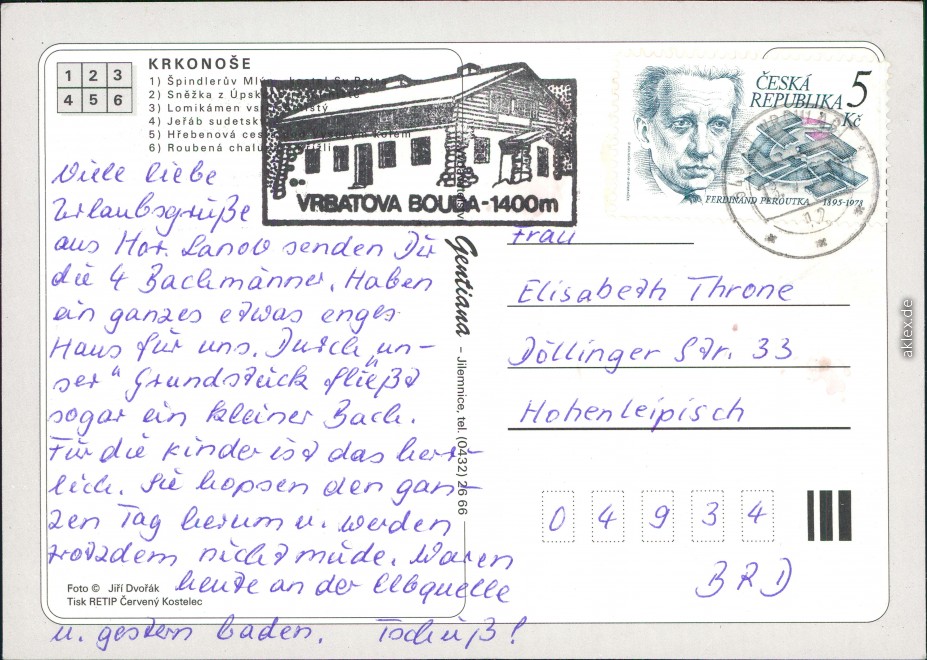 1 2 3
4 5 6
KRKONOŠE
1) Špindlerův Mlýn, kostel Sv. Petra
2) Sněžka z Úpsk
3) Lomikámen vs
4) Jeřáb sudetsk
5) Hřebenová ces
6) Roubená chalu
VRBATOVA BOUDA-1400m
ČESKÁ
REPUBLIKA 5
Kč
FERDINAND PEROUTKA 1895-1978
Viele liebe
Urlaubsgrüße
aus Hor. Lanov senden Dir
die 4 Bachmänner. Haben
ein ganzes etwas enges
Haus für uns. Durch „un-
ser" Grundstück fließt
sogar ein kleiner Bach.
Für die Kinder ist das herr-
lich. Sie hopsen den gan-
zen Tag herum u. werden
trotzdem nicht müde. Waren
heute an der Elbquelle
u. gestern baden. Tschüß!
Foto © Jiří Dvořák
Tisk RETIP Červený Kostelec
Gentiana – Jilemnice, tel. (0432) 26 66
Frau
Elisabeth Throne
Döllinger Str. 33
Hohenleipisch
0 4 9 3 4
BRD
aklex.de